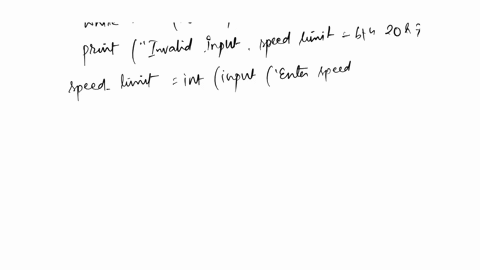 print ("Invalid Input. speed limit = b/w 20 &
speed_limit = int (input ("Enter speed